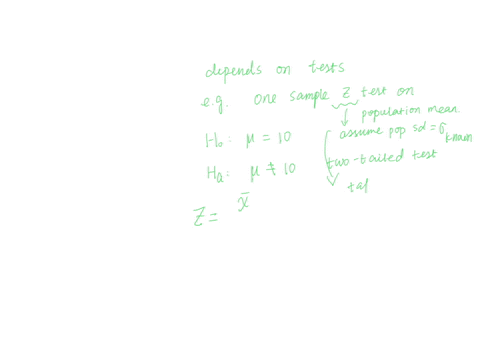 depends on tests
e.g. one sample z test on
population mean.
assume pop sd = σ known
H₀: μ = 10
two-tailed test
Hₐ: μ ≠ 10
x̄
Z =